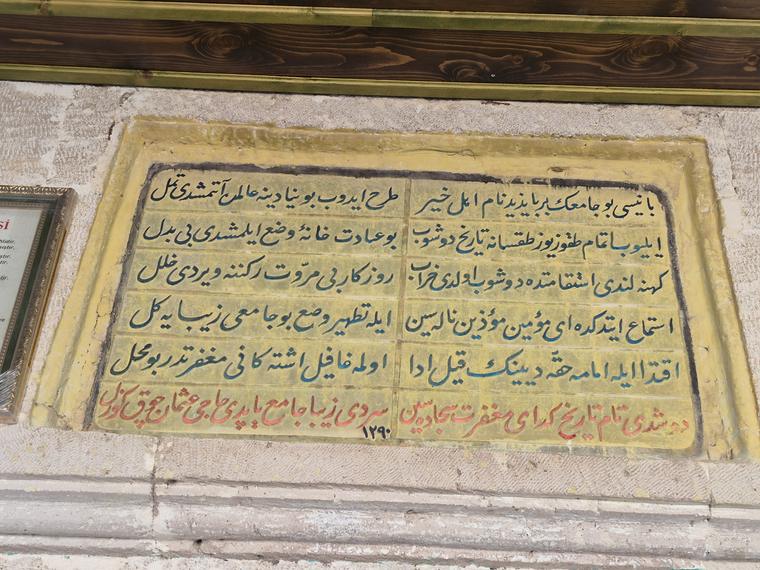 بانیسی بو جامعك بر بایزید نام اهل خیر
طرح ایدوب بو نیادینه عالمدن آتمشدی تمل
ایلیوب اتمام طقوزیوز طقسانه تاریخ دوشوب
بو عبادت خانهٔ وضع ایلمشدی بی بدل
كهنه لندی استقامتده دوشوب اولدی خراب
روزكار بی مروّت ركننه ویردی خلل
استماع ایتدكده ای مؤمین مؤذین ناله سین
ایله تطهیر وضع بو جامعی زیبایه كل
اقتدا ایله امامه حقّه دیینك قیل ادا
اولمه غافیل اشته كافی مغفرتدر بو محل
دوشدی تام تاریخ كدای مغفرت سجاده سین
سردی زیبا جامع یاپدی حاجی عثمان چوق كوزل
١٢٩٠